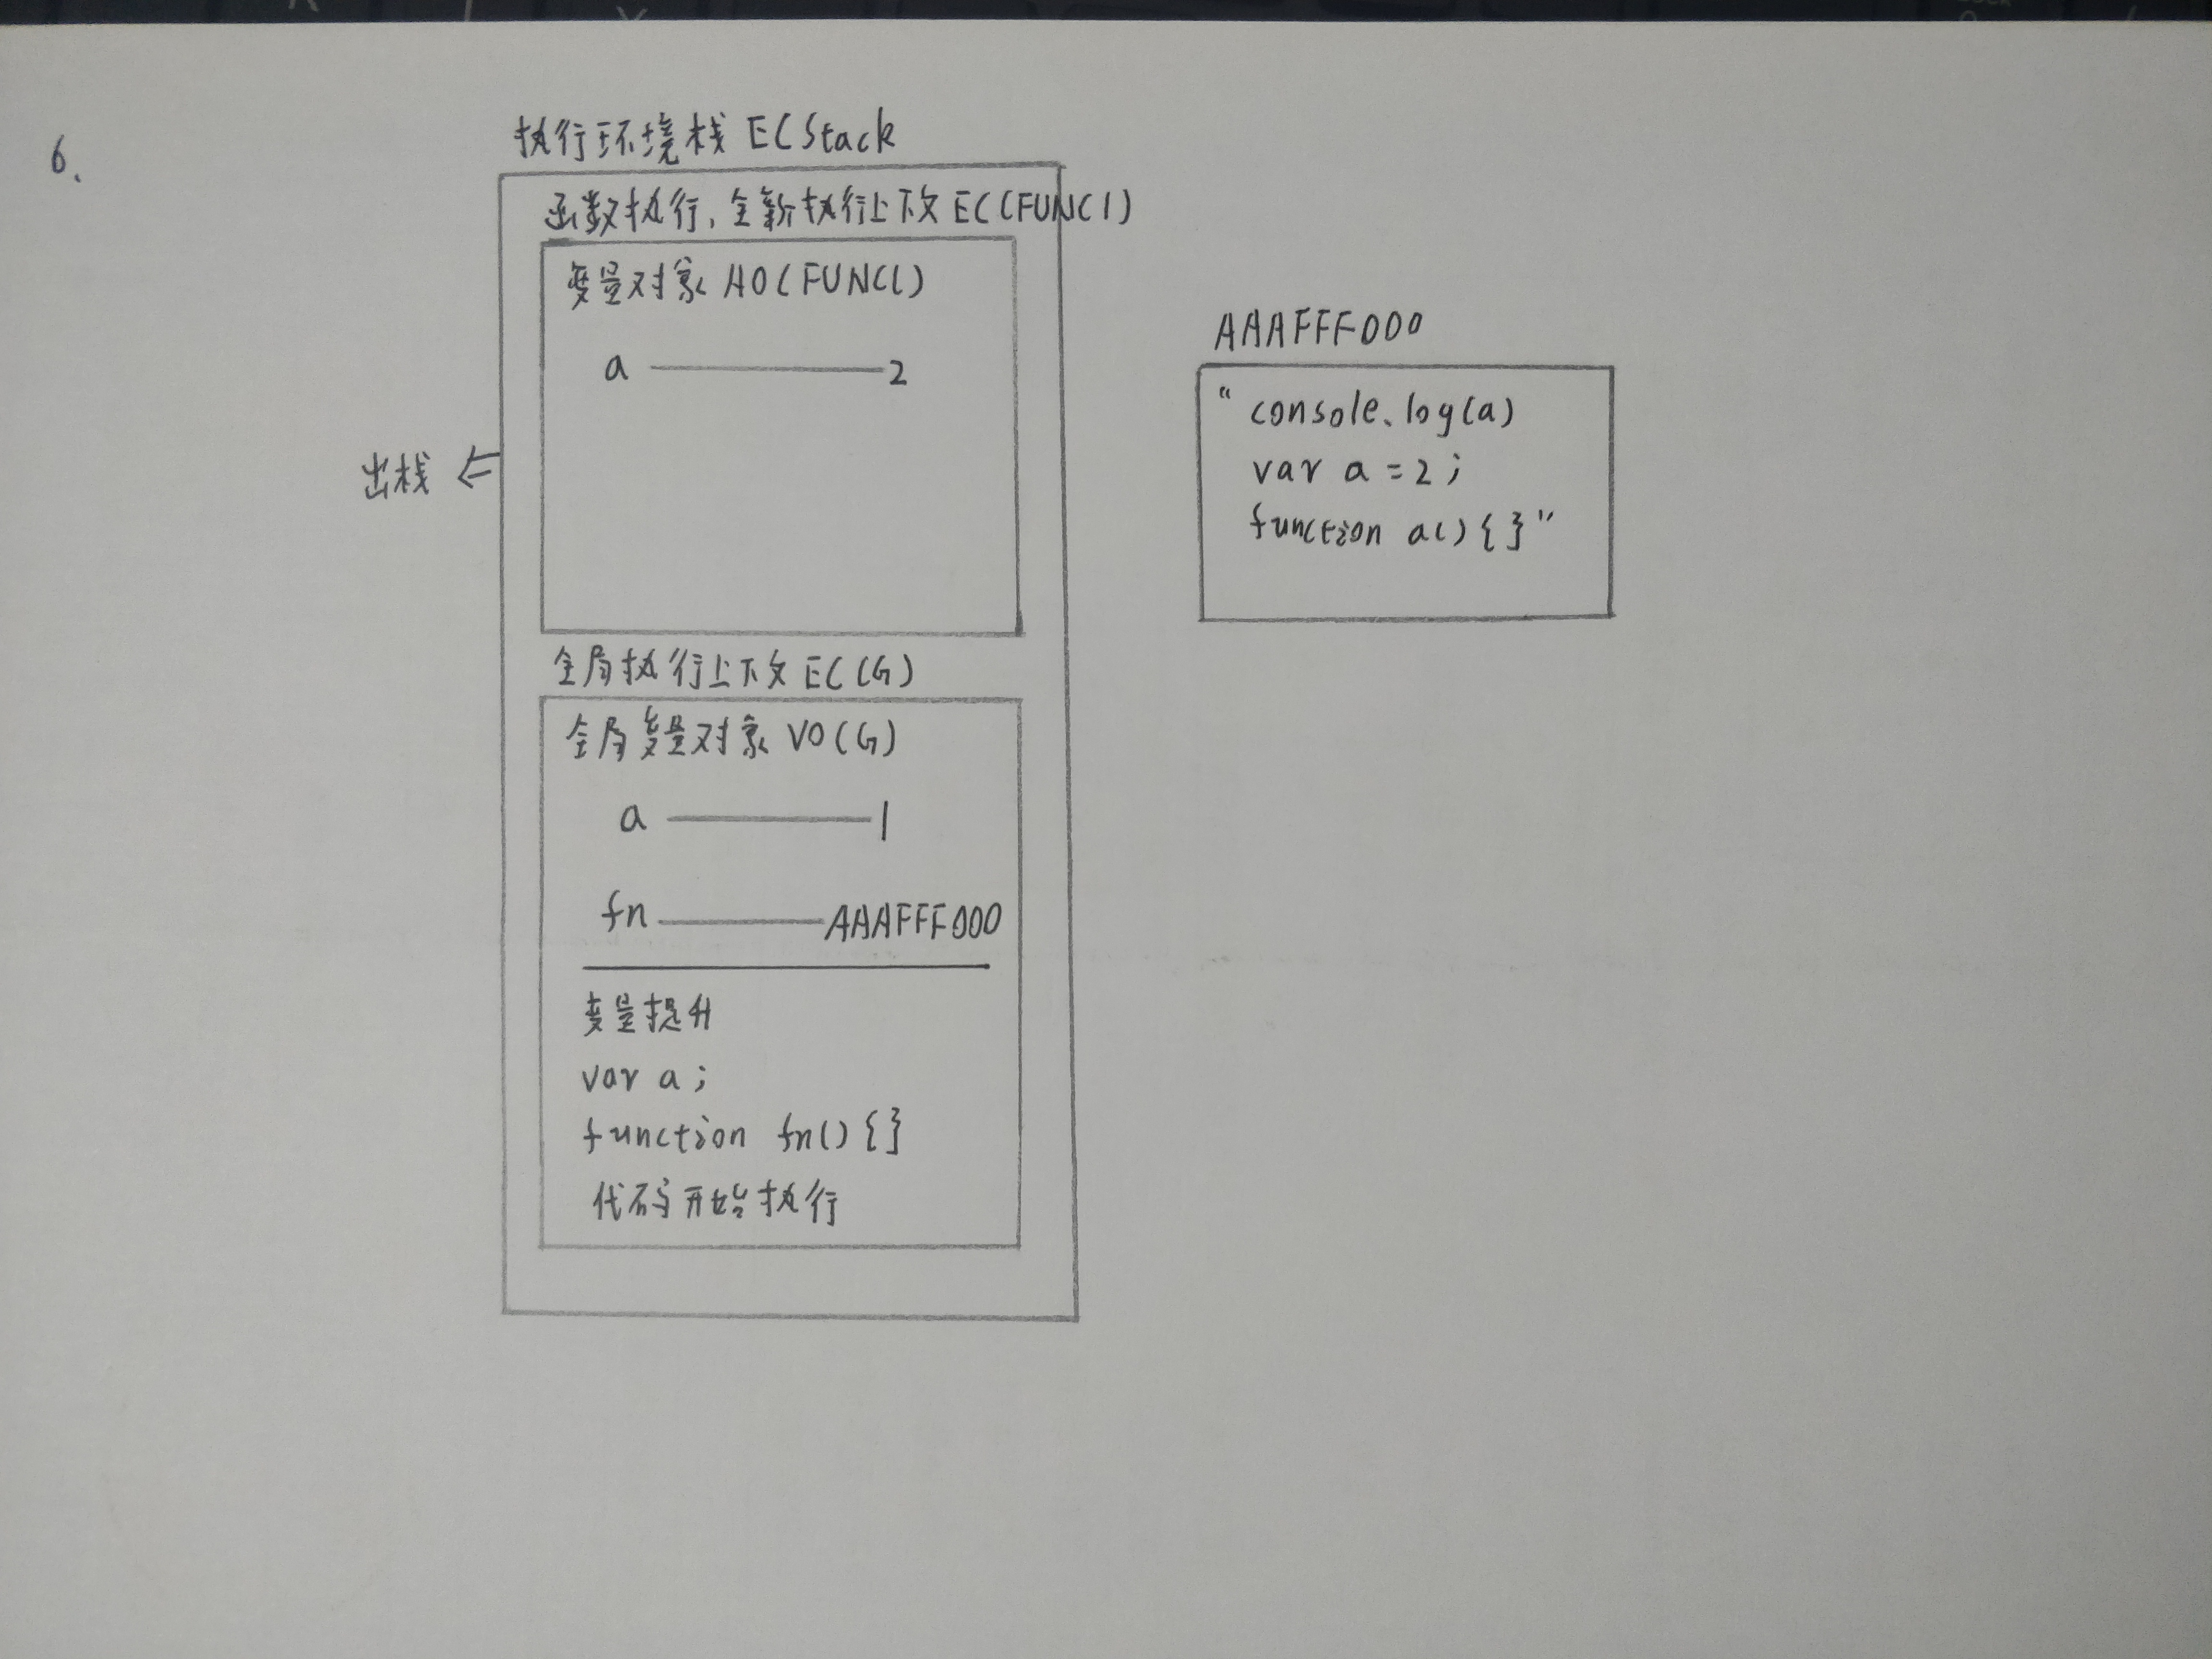 6.
执行环境栈 ECStack
函数执行,全新执行上下文 EC(FUNC1)
变量对象 AO(FUNC1)
a ——— 2
出栈 ⇐
全局执行上下文 EC(G)
全局变量对象 VO(G)
a ——— 1
fn ——— AAAFFF000
变量提升
var a;
function fn(){}
代码开始执行
AAAFFF000
“console.log(a)
var a = 2;
function a(){}”